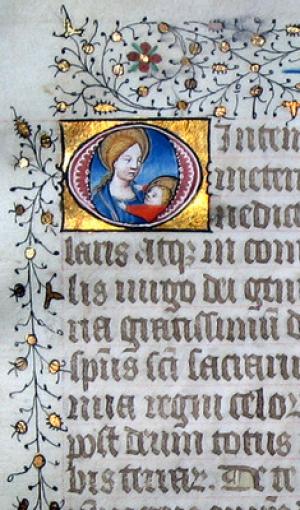 O Intem
ineter
nedict
laris atqꝫ in com
lis uirgo dei geni
ria gratissimū d
spūs sc̄i sacrariu
nua regni celoꝝ
post deum totus
bis terrar. De te